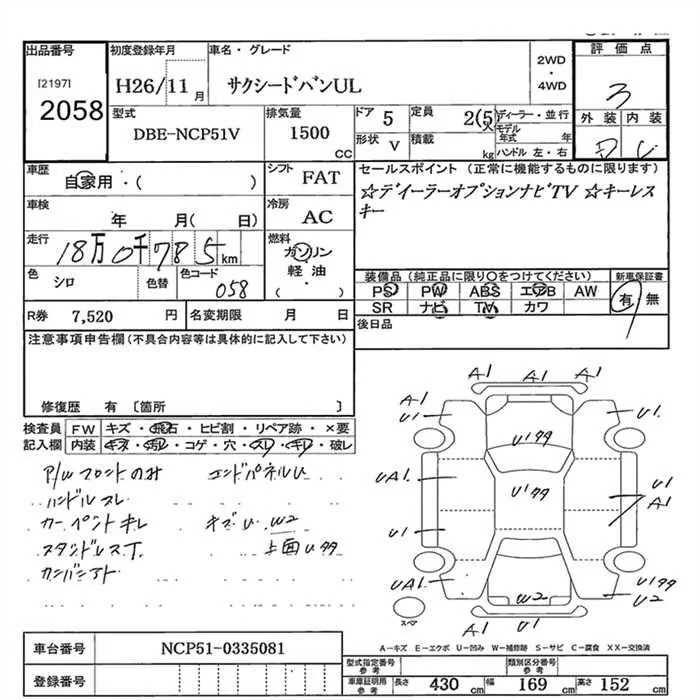 出品番号 初度登録年月 車名・グレード 2WD・4WD 評価点
[2197] 2058 H26/11月 サクシードバンUL 3
型式 排気量 ドア 5 定員 2(5)人 ディーラー・並行 外装 内装
DBE-NCP51V 1500CC 形状 V 積載 kg モデル年式 年
ハンドル 左・右
車歴 シフト セールスポイント (正常に機能するものに限ります)
自家用・( ) FAT ☆ディーラーオプションナビTV ☆キーレス
キー
車検 冷房
年 月( 日) AC
走行 燃料
18万0千785km ガソリン
軽油・
( )
色 シロ 色替 色コード 058
装備品 (純正品に限り○をつけてください) 新車保証書
PS PW ABS エアB AW 有 無
SR ナビ TV カワ
R券 7,520 円 名変期限 月 日 後日品
注意事項申告欄(不具合内容等は具体的に記入して下さい)
修復歴 有 〔箇所 〕
検査員 FW キズ・飛石・ヒビ割・リペア跡・×要
記入欄 内装 キズ・汚れ・コゲ・穴・スレ・キレ・破レ
P/W フロントのみ エンドパネルU
ハンドルスレ
カーペントキレ キズU W2
上面Uタタ
A1 A1 A1
U1 U1
U1タタ
UA1 U1タタ U A1
U1
UA1 U1タタ
W2 U2
スペア A1 U1 A1
A-キズ E-エクボ U-凹み W-補修跡 S-サビ C-腐食 XX-交換済
車台番号 NCP51-0335081
登録番号
型式指定番号 参考 類別区分番号 参考
車庫証明用 参考 長さ 430 cm 幅 169 cm 高さ 152 cm